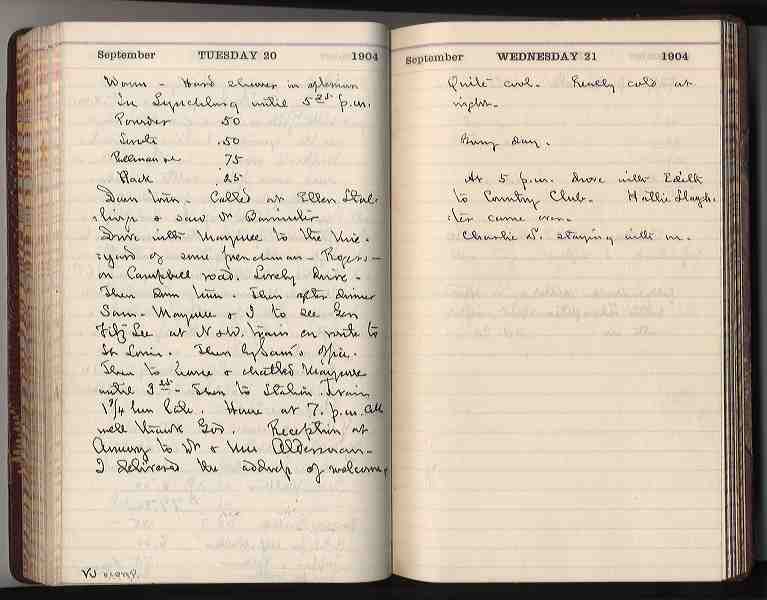 September TUESDAY 20 1904
Warm - Hard shower in afternoon
In Lynchburg until 5 25 p.m.
Powder .50
.50
Pullman 75
.25
Down town - Called at Ellen
& saw Dr
Drive with Maynee to the Vine-
yard of some frenchman - Rogers -
on Campbell road. Lovely drive -
Then down town. Then after dinner
Sam - Maynee & I to see Gen
Fitz Lee at N & W. train en route to
St Louis. Then by Sam's office.
Then to house & chatted Maynee
until 3 Then to Station. Train
1 3/4 hour late. Home at 7. p.m. All
well thank God. Reception at
Armory to Dr & Mrs Alderman -
I delivered the address of welcome.
September WEDNESDAY 21 1904
Quite cool. Really cold at
night.
Busy day.
At 5 p.m. drove with Edith
to Country Club. Hallie Slaugh-
ter came over.
Charlie S. staying with us.